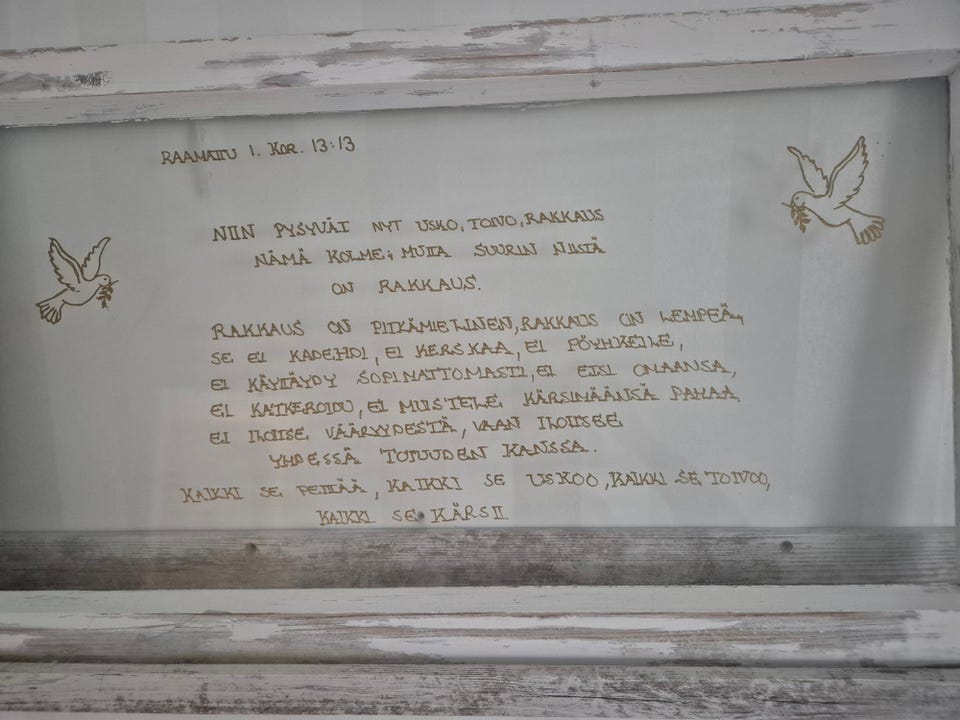 RAAMATTU 1. KOR. 13:13
NIIN PYSYVÄT NYT USKO, TOIVO, RAKKAUS
NÄMÄ KOLME; MUTTA SUURIN NIISTÄ
ON RAKKAUS.
RAKKAUS ON PITKÄMIELINEN, RAKKAUS ON LEMPEÄ,
SE EI KADEHDI, EI KERSKAA, EI PÖYHKEILE,
EI KÄYTTÄYDY SOPIMATTOMASTI, EI ETSI OMAANSA,
EI KATKEROIDU, EI MUISTELE KÄRSIMÄÄNSÄ PAHAA,
EI ILOITSE VÄÄRYYDESTÄ, VAAN ILOITSEE
YHDESSÄ TOTUUDEN KANSSA.
KAIKKI SE PEITTÄÄ, KAIKKI SE USKOO, KAIKKI SE TOIVOO,
KAIKKI SE KÄRSII